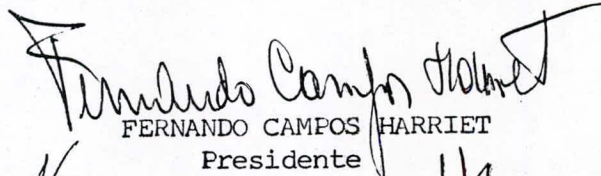 Fernando Campos Harriet
FERNANDO CAMPOS HARRIET
Presidente